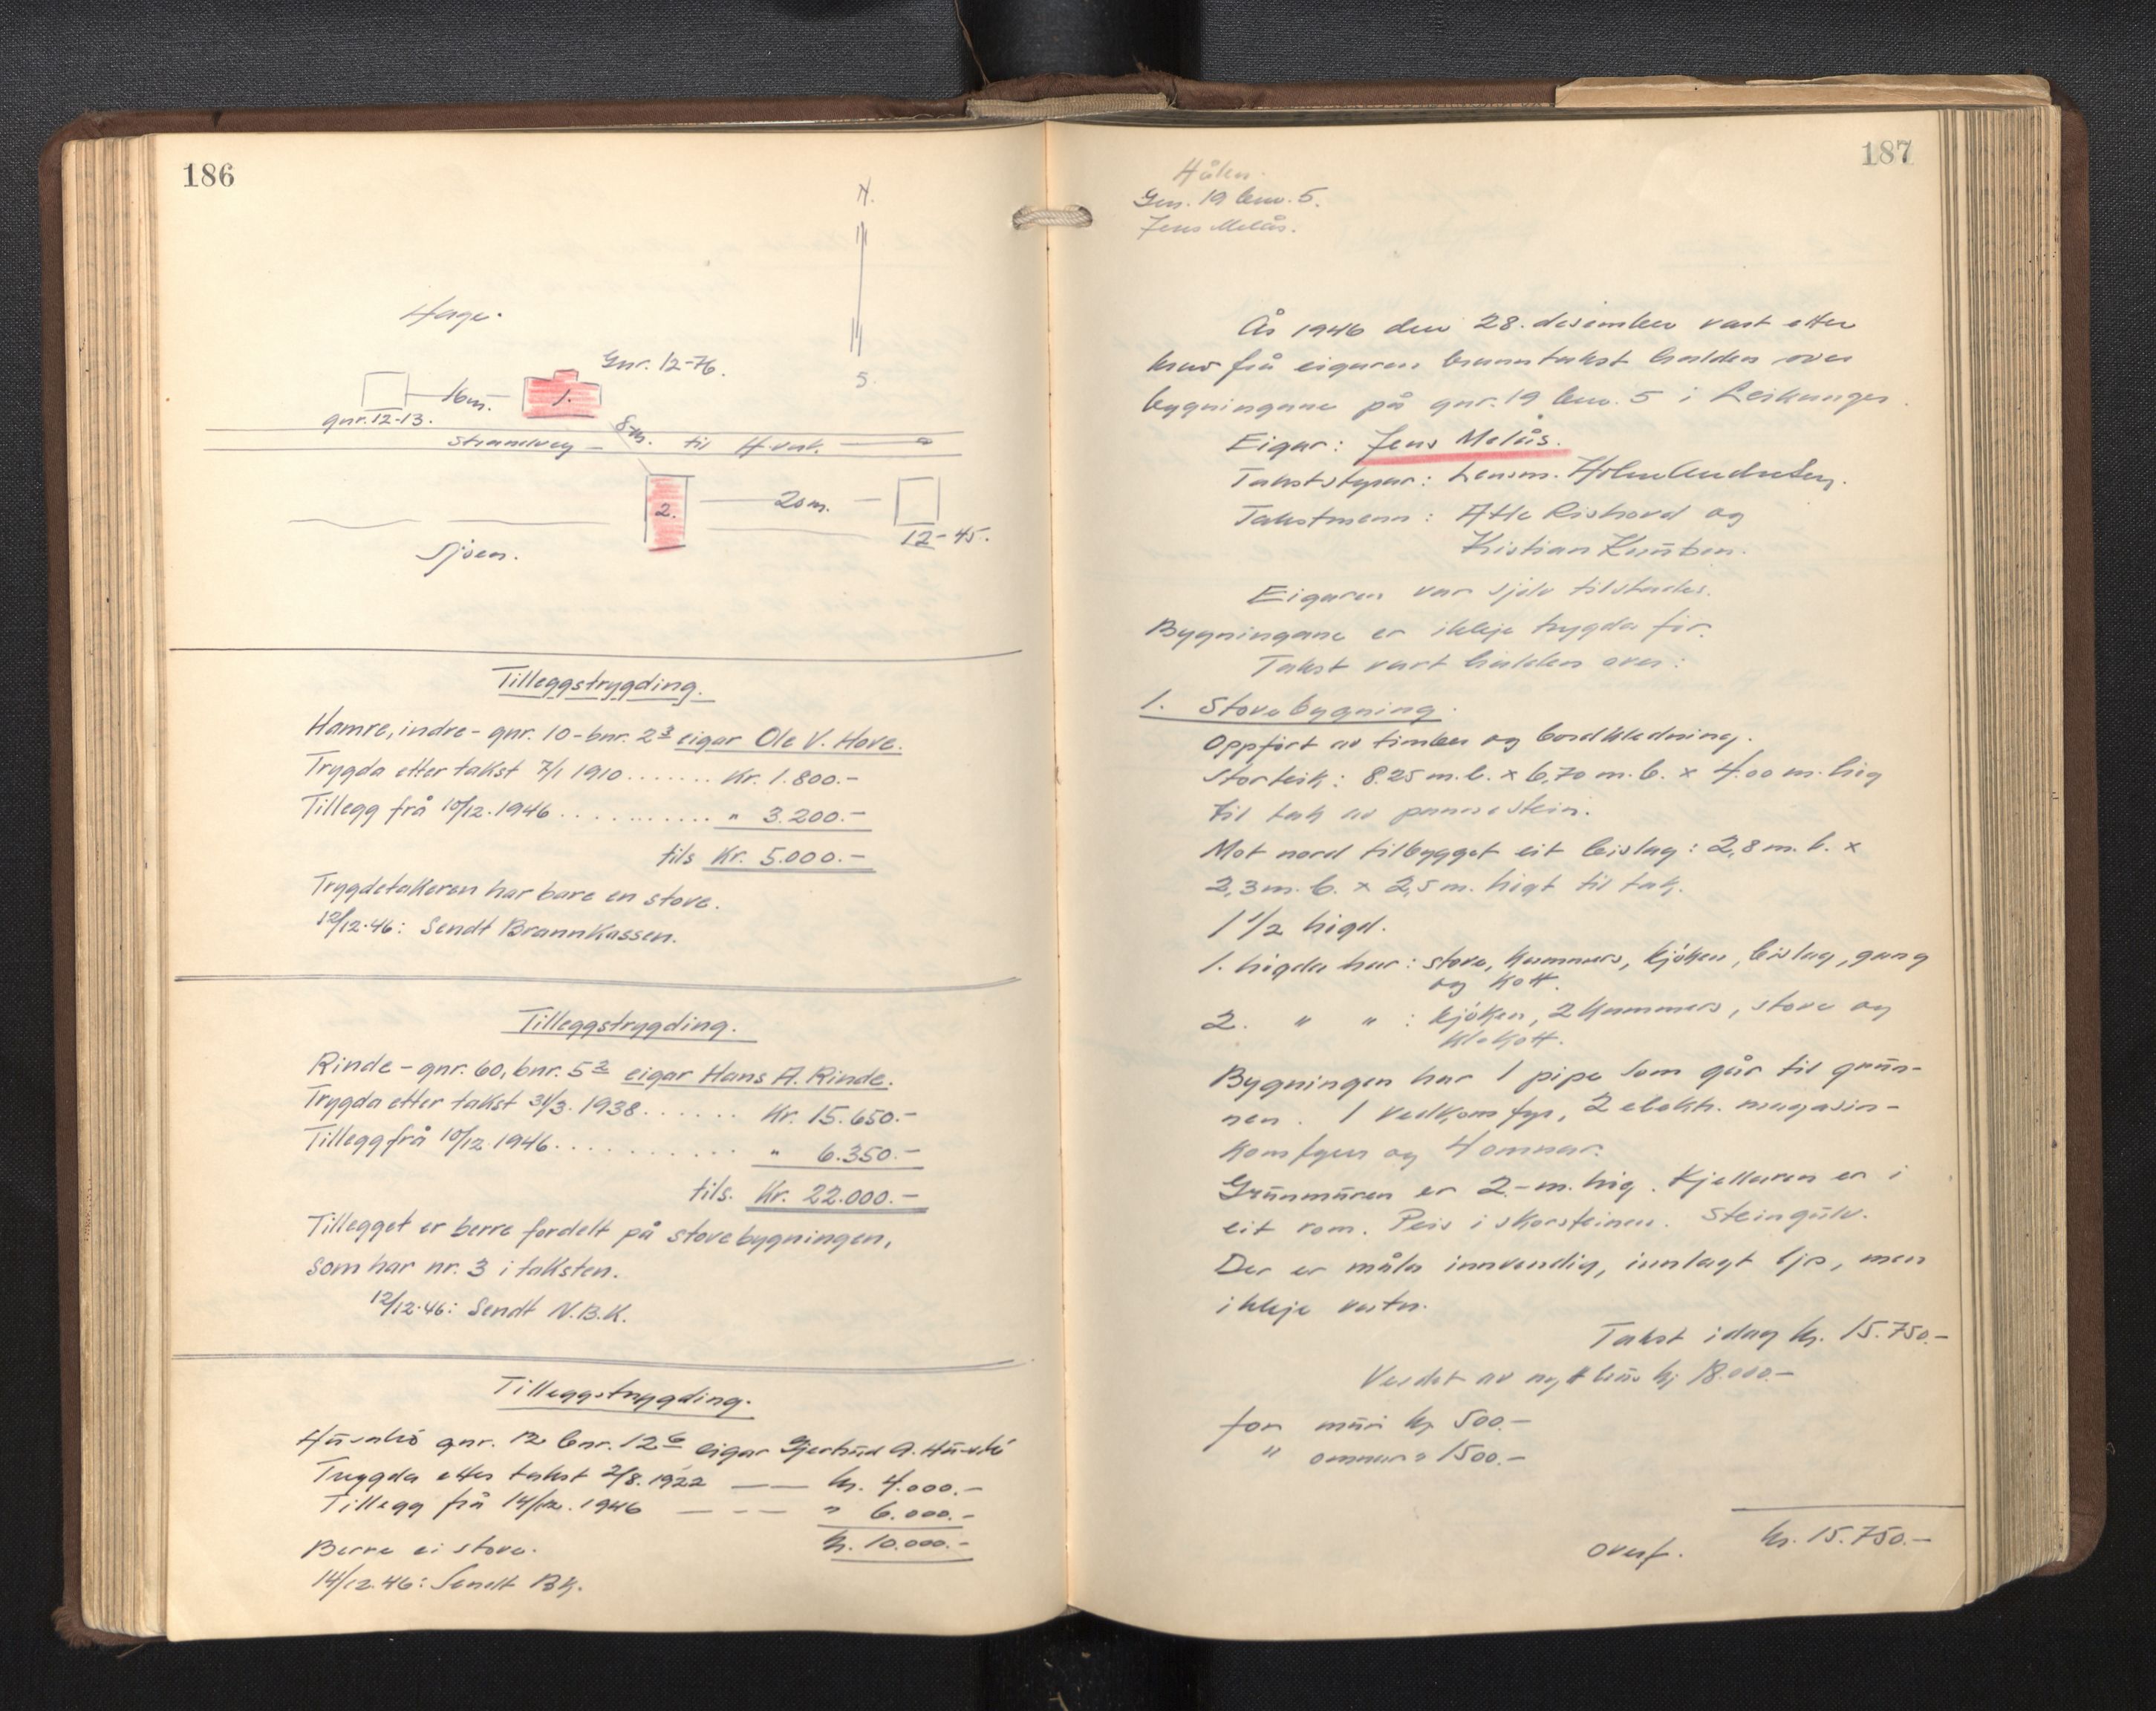 186
N.
Hage.
Gnr. 12-76.
S.
16m.
1.
gnr. 12-13.
8 m.
Strandveg — til H.vik.
2.
20 m.
12-45.
Sjøen.
Tilleggstrygding.
Hamre, indre - gnr. 10 - bnr. 2³ eigar Ole V. Hove.
Trygda etter takst 7/1 1910 ....... Kr. 1.800.-
Tillegg frå 10/12.1946 ........... " 3.200.-
tils Kr. 5.000.-
Trygdetakeren har bare en stove.
12/12.46: Sendt Brannkassen.
Tilleggstrygding.
Rinde - gnr. 60, bnr. 5² eigar Hans A. Rinde.
Trygda etter takst 31/3. 1938 ...... Kr. 15.650.-
Tillegg frå 10/12.1946 ........... " 6.350.-
tils. Kr. 22.000.-
Tillegget er berre fordelt på stovebygningen,
som har nr. 3 i taksten.
12/12.46: Sendt N.B.K.
Tilleggstrygding.
gnr. 12 bnr. 12⁶ eigar
Trygda etter takst 2/8.1922 —— kr. 4.000.-
Tillegg frå 14/12.1946 — - — " 6.000.-
Berre ei stove. kr. 10.000.-
14/12.46: Sendt Bk.
187
Gnr. 19 bnr. 5.
Jens Melås.
År 1946 den 28. desember vart etter
krav frå eigaren branntakst halden over
bygningane på gnr. 19 bnr. 5 i Leikanger.
Eigar: Jens Melås.
Takststyrar: Lensm.
Takstmenn: Atle Rishovd og
Kristian
Eigaren var sjølv tilstades.
Bygningane er ikkje trygda før.
Takst vart halden over:
1. Stovebygning.
Oppført av timber og bordkledning.
Storleik: 8.25 m. l. x 6,70 m. b. x 4.00 m. høg
til tak av pannestein.
Mot nord tilbygget eit bislag: 2,8 m. l. x
2,3 m. b. x 2,5 m. høgt til tak.
1 1/2 høgd.
1. høgda har: stove, kammers, kjøken, bislag, gang
og kott.
2. " " : kjøken, 2 kammers, stove og
klekott.
Bygningen har 1 pipe som går til grun-
nen. 1 vedkomfyr, 2 elektr. magasin-
komfyrer og 4 omnar.
Grunmuren er 2.- m. høg. Kjellaren er i
eit rom. Peis i skorsteinen. Steingulv.
Der er måla innvendig, innlagt ljs, men
ikkje vatn.
Takst idag kr. 15.750.-
Verdet av nytt hus kr 18.000.-
for mur kr 500.-
" omnar " 1500.-
Overf. kr. 15.750.-